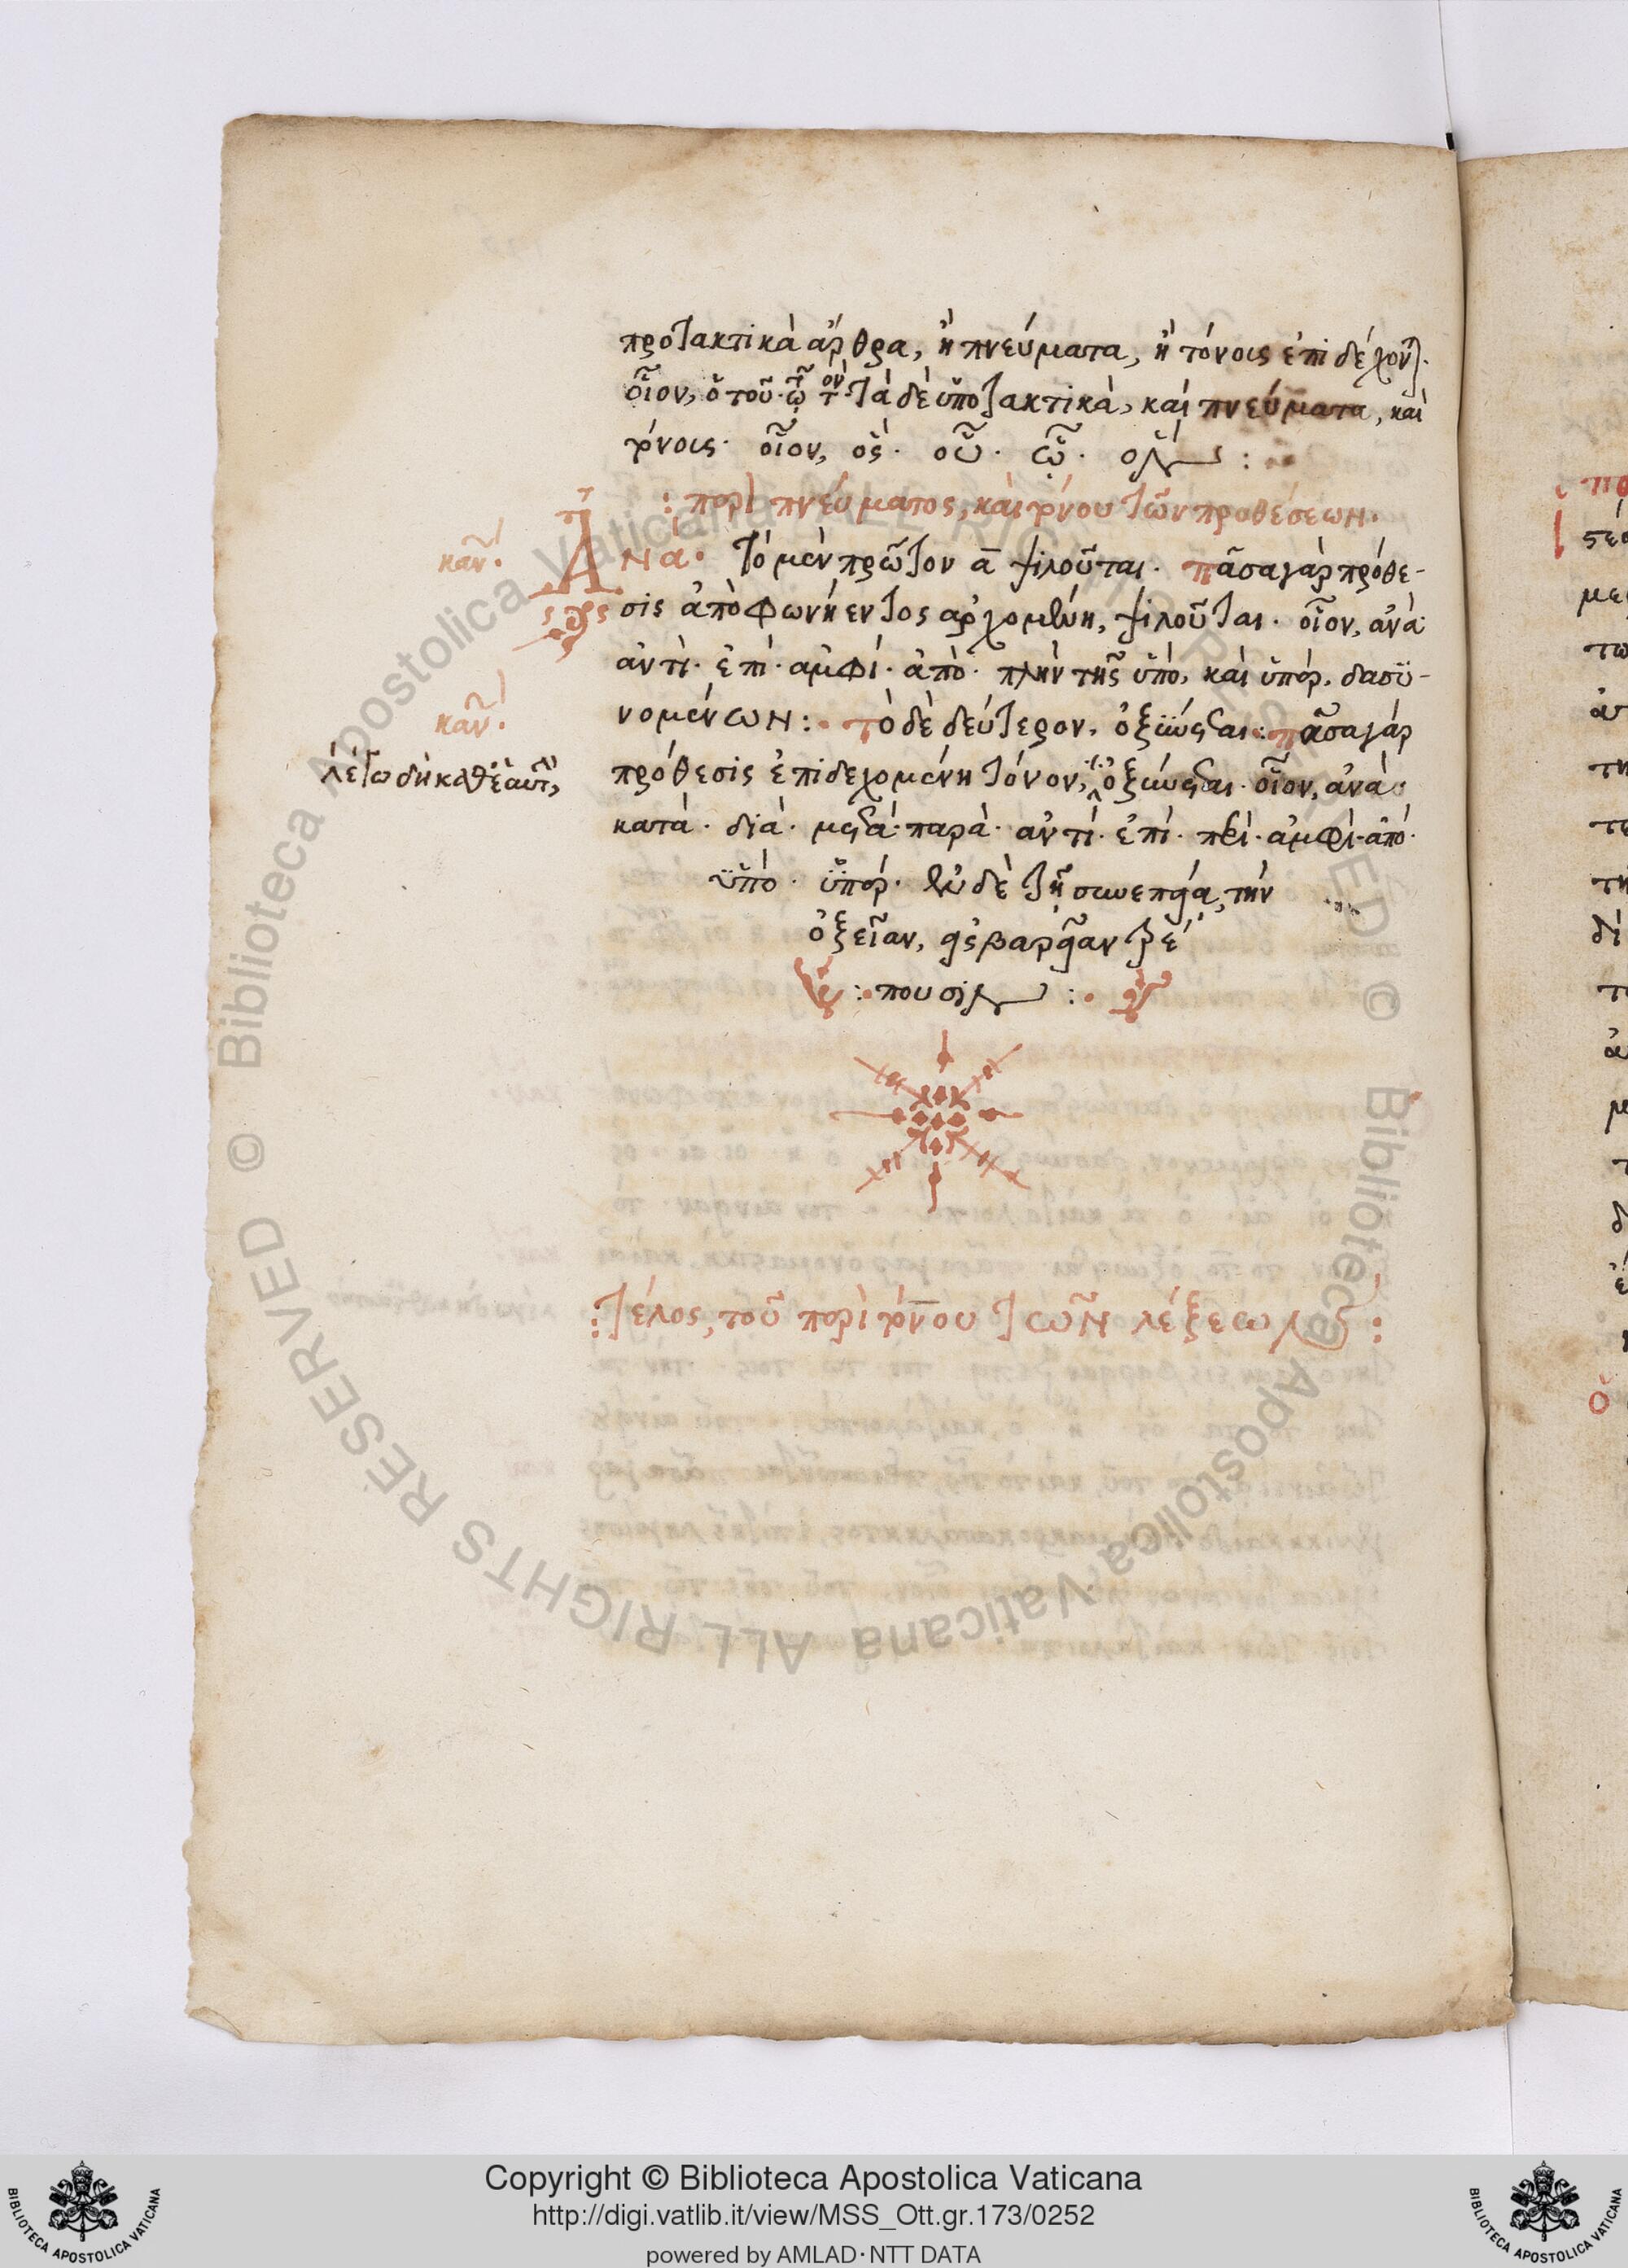 προτακτικὰ ἄρθρα, ἢ πνεύματα, ἢ τόνοις ἐπιδέχον̃τ.
οἷον, ὁ τοῦ. τῷ τὸν. τὰ δὲ ὑποτακτικὰ, καὶ πνεύματα, καὶ
τόνοις. οἷον, ὅς. οὗ. ᾧ. ὅν :
: περὶ πνεύματος, καὶ τόνου τῶν προθέσεων.
καν.
Ἀνά. τὸ μὲν πρῶτον α ψιλοῦται. πᾶσα γὰρ πρόθε-
σις ἀπὸ φωνήεντος ἀρχομένη, ψιλοῦται. οἷον, ἀνά.
ἀντὶ. ἐπί. ἀμφί. ἀπὸ. πλὴν τῆς ὑπὸ, καὶ ὑπέρ. δασϋ-
καν.
νομένων :. τὸ δὲ δεύτερον, ὀξύνεται : πᾶσα γάρ
λέγω δὴ καθ' ἑαυτ,
πρόθεσις ἐπιδεχομένη τόνον, ὀξύνεται. οἷον, ἀνὰ.
κατά. διά. μετά. παρά. ἀντί. ἐπί. περί. ἀμφί. ἀπό.
ὑπό. ὑπέρ. ἐν δὲ τῇ συνεπεία, τὴν
ὀξεῖαν, εἰς βαρεῖαν τρέ
: πουσιν :
: τέλος, τοῦ περὶ τόνου τῶν λέξεων :
Copyright © Biblioteca Apostolica Vaticana
http://digi.vatlib.it/view/MSS_Ott.gr.173/0252
powered by AMLAD·NTT DATA
BIBLIOTECA APOSTOLICA VATICANA
BIBLIOTECA APOSTOLICA VATICANA
© Biblioteca Apostolica Vaticana ALL RIGHTS RESERVED © Biblioteca Apostolica Vaticana ALL RIGHTS RESERVED